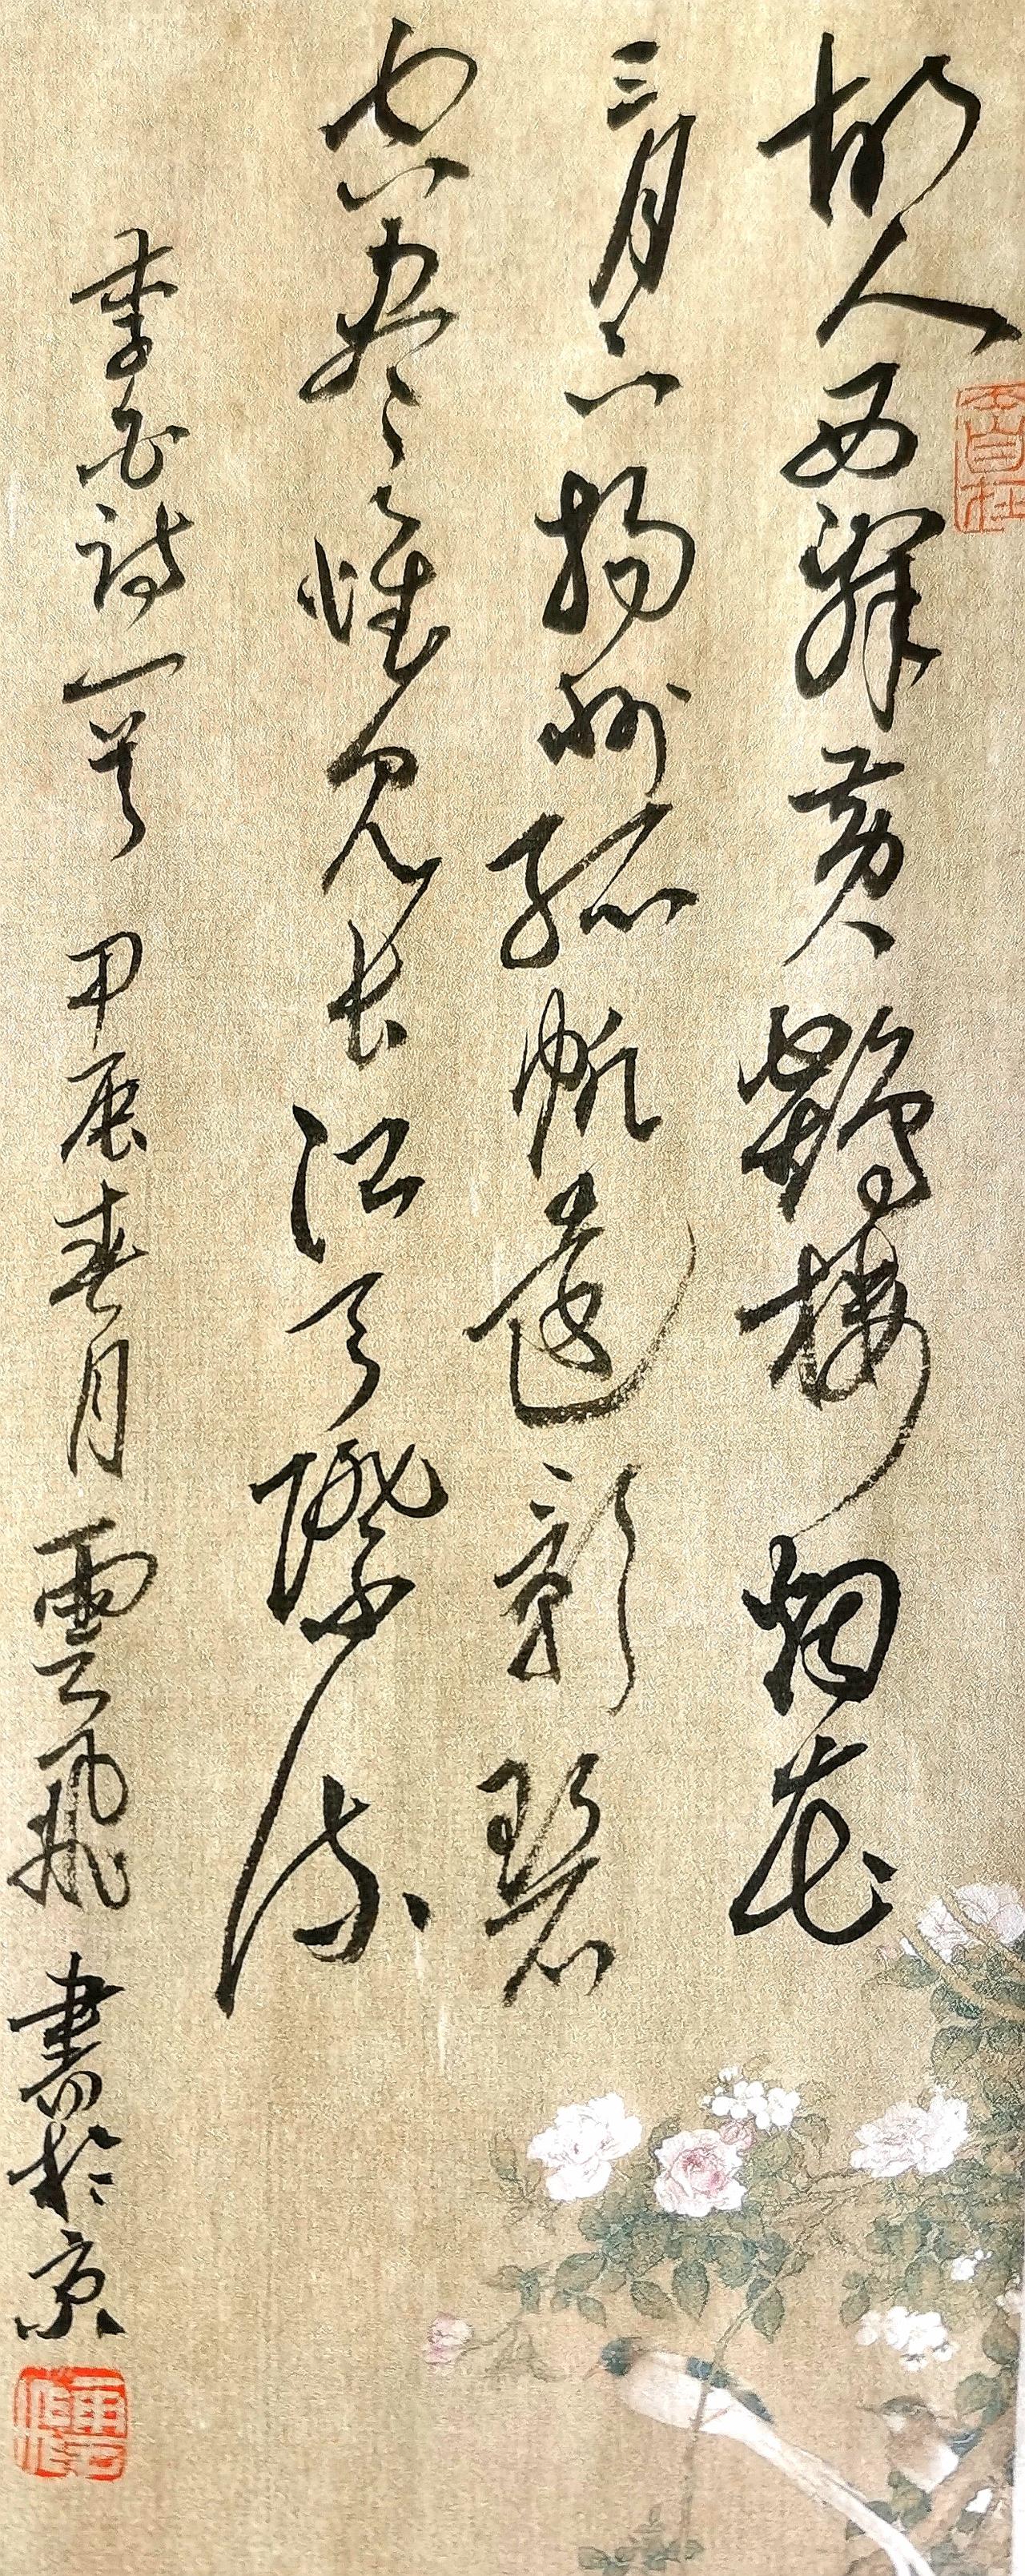 故人西辭黄鶴楼烟花
三月下揚州孤帆遠影碧
空尽惟見長江天際流
李白詩一首 甲辰春月 雲飛 書於京